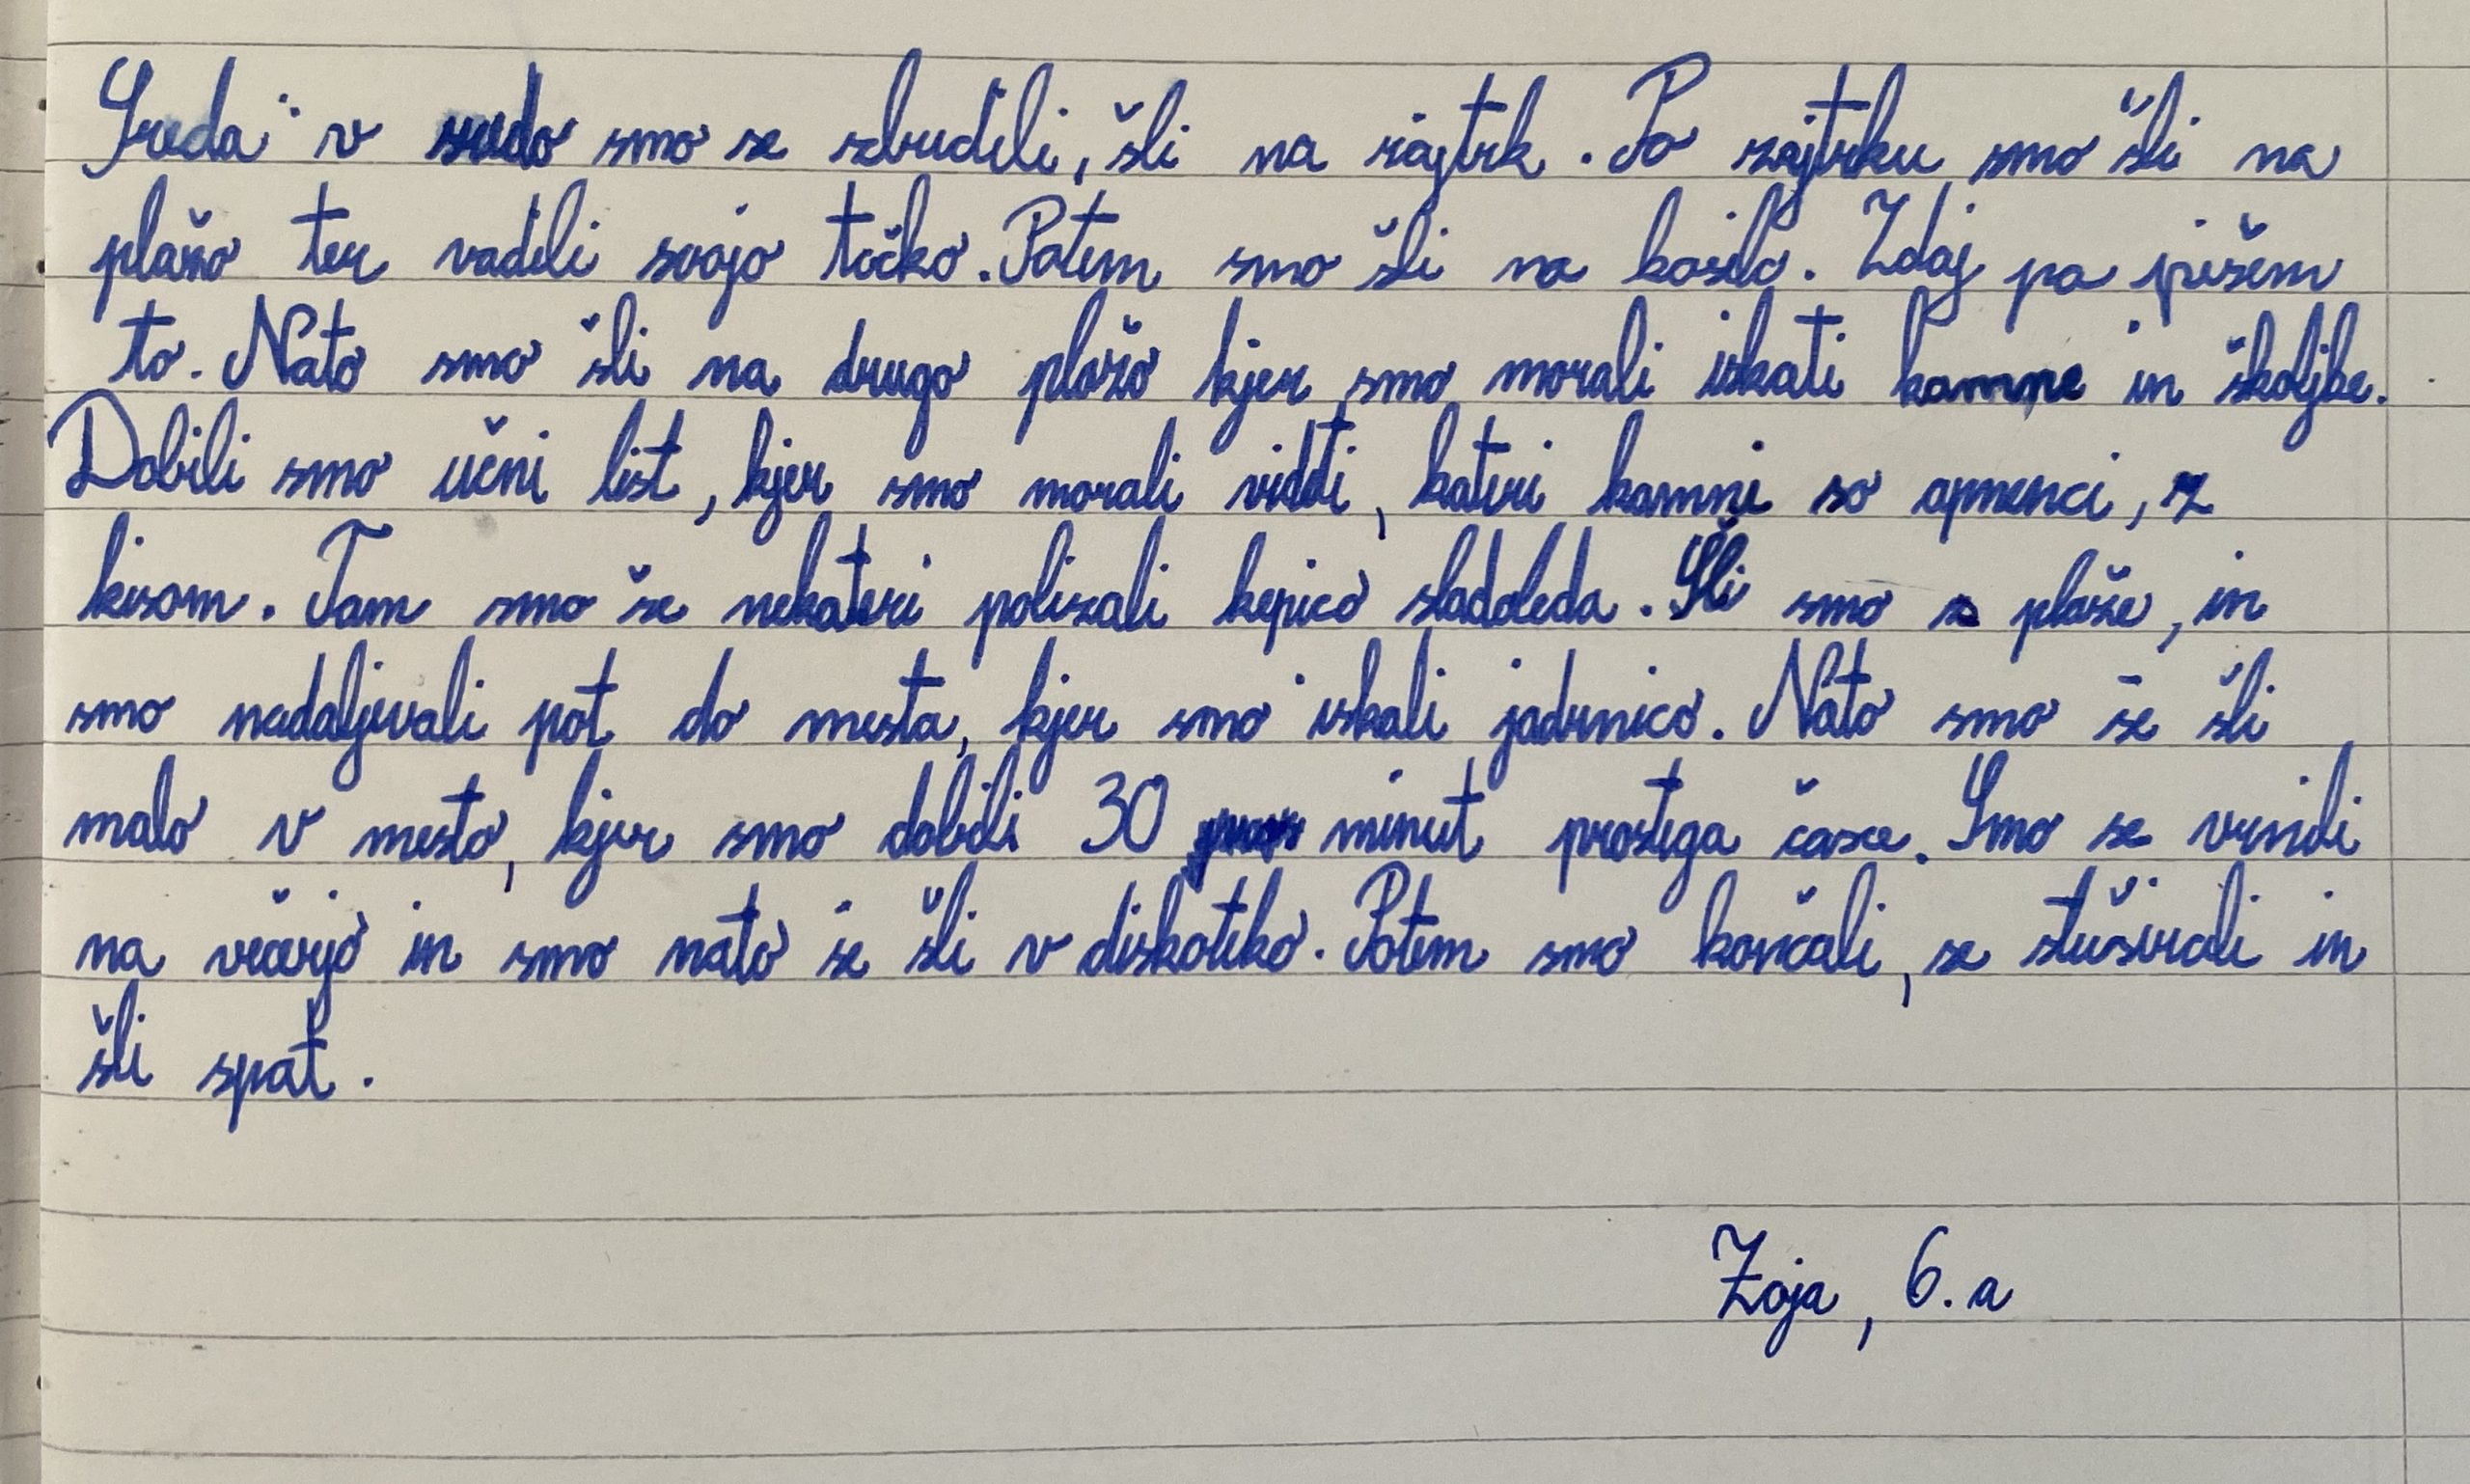 Sreda: v sredo smo se zbudili, šli na zajtrk. Po zajtrku smo šli na
plažo ter vadili svojo točko. Potem smo šli na kosilo. Zdaj pa pišem
to. Nato smo šli na drugo plažo kjer smo morali iskati kamne in školjke.
Dobili smo učni list, kjer smo morali videti, kateri kamni so apnenci, z
kisom. Tam smo še nekateri polizali kepico sladoleda. Šli smo s plaže, in
smo nadaljevali pot do mesta, kjer smo iskali jadrnico. Nato smo še šli
malo v mesto, kjer smo dobili 30 minut prostega časa. Smo se vrnili
na večerjo in smo nato še šli v diskoteko. Potem smo končali, se stuširali in
šli spat.
Zoja, 6. a